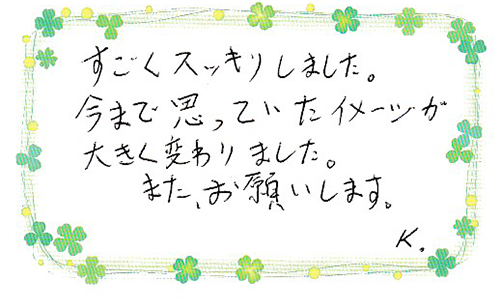 すごくスッキリしました。
今まで思っていたイメージが
大きく変わりました。
また、お願いします。
K.